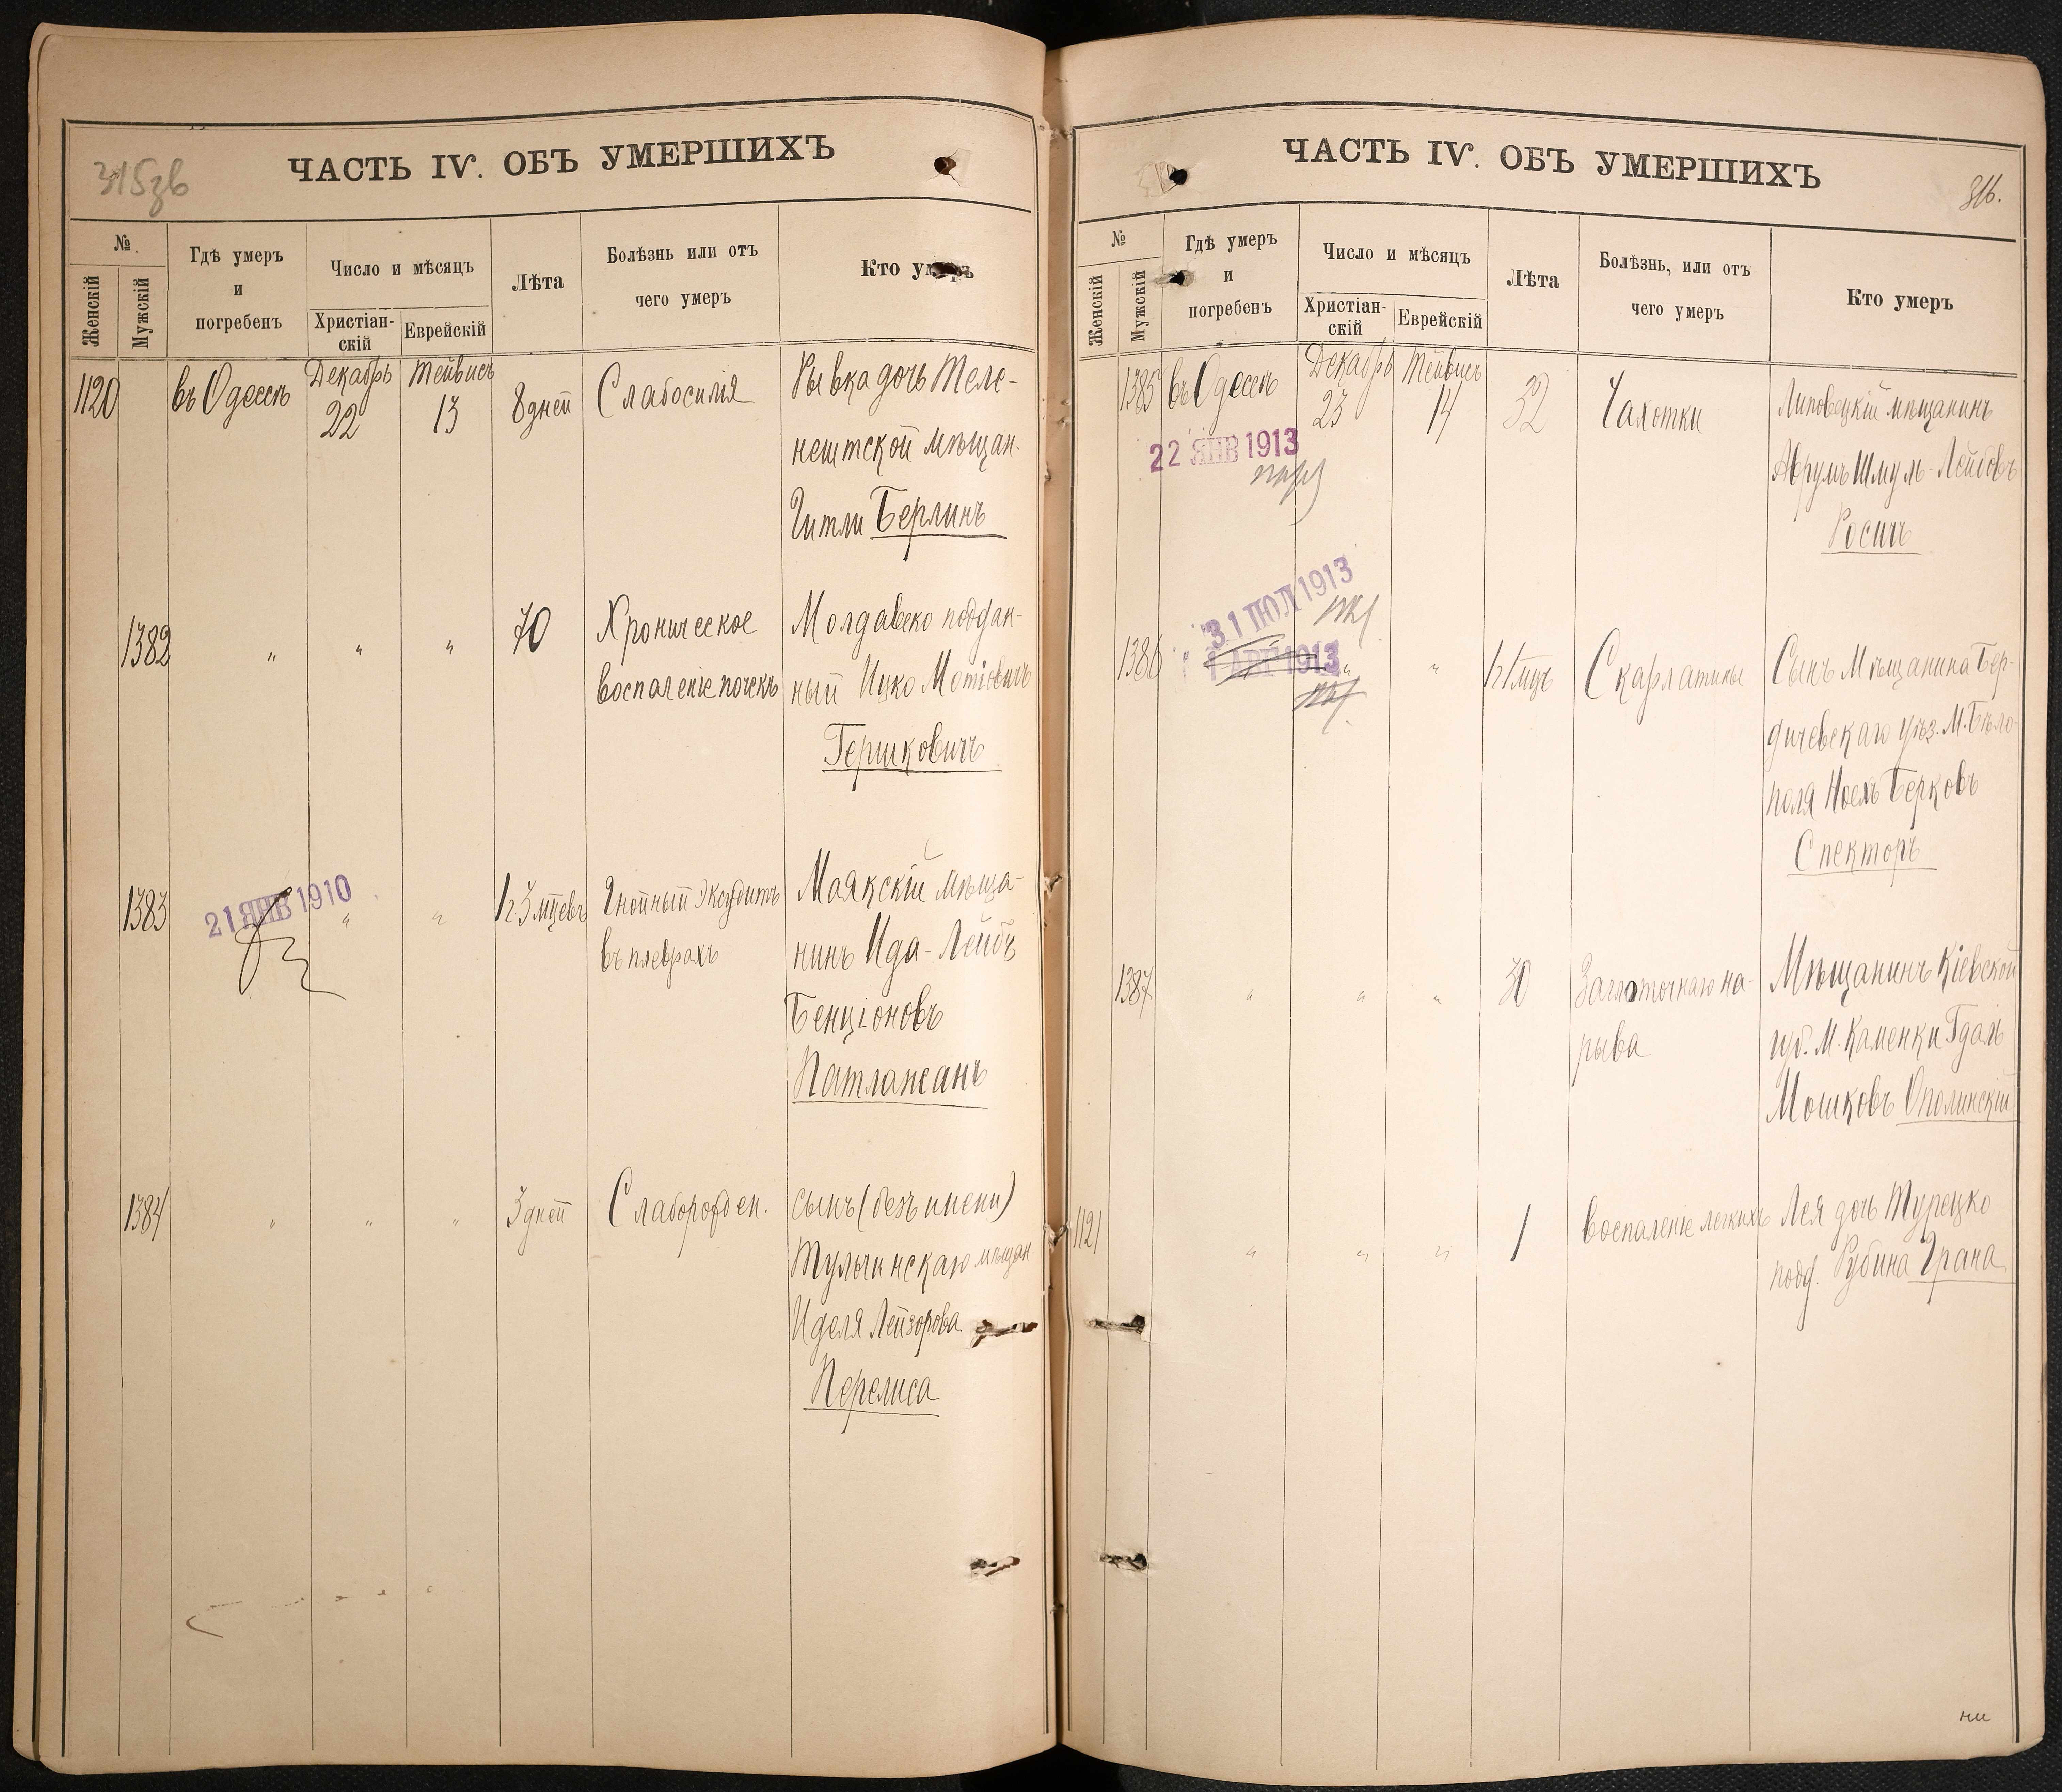 315зв
ЧАСТЬ IV. ОБЪ УМЕРШИХЪ
№
Женскій
Мужскій
Гдѣ умеръ
и
погребенъ
Число и мѣсяцъ
Христіан-
скій
Еврейскій
Лѣта
Болѣзнь или отъ
чего умеръ
Кто умеръ
1120
въ Одессѣ
Декабрь
22
Тейвисъ
13
8 дней
Слабосилія
Рывка дочь Теле-
нештской мѣщан.
Гитли Берлинъ
1382
"
"
"
70
Хроническое
воспаленіе почекъ
Молдавско поддан-
ный Ицко Мотіовичъ
Гершковичъ
1383
21 ЯНВ 1910
"
"
1 г. 3 мѣсцевъ
Гнойный Эксудатъ
въ плеврахъ
Маякскій мѣща-
нинъ Ида-Лейбъ
Бенціоновъ
Патлажанъ
1384
"
"
"
3 дней
Слаборожден.
сынъ (безъ имени)
Тульчинскаго мѣщан
Иделя Лейзорова
Перелиса
ЧАСТЬ IV. ОБЪ УМЕРШИХЪ
316.
№
Женскій
Мужскій
Гдѣ умеръ
и
погребенъ
Число и мѣсяцъ
Христіан-
скій
Еврейскій
Лѣта
Болѣзнь, или отъ
чего умеръ
Кто умеръ
1385
въ Одессѣ
Декабрь
23
Тейвисъ
14
32
Чахотки
Липовецкій мѣщанинъ
Аврумъ Шмуль-Лейбовъ
Росичъ
22 ЯНВ 1913
31 ІЮЛ 1913
1 АВГ 1913
1386
"
"
1 г. 1 мцъ
Скарлатины
Сынъ Мѣщанина Бер-
дичевскаго уѣз. М. Бѣло-
поля Ноехъ Берковъ
Спекторъ
1387
"
"
"
30
Заглоточнаго на-
рыва
Мѣщанинъ Кіевской
губ. М. Каменки Гдаль
Мошковъ Ополинскій
1121
"
"
"
1
воспаленіе легкихъ
Лея дочь Турецко
подд. Рубина Грана